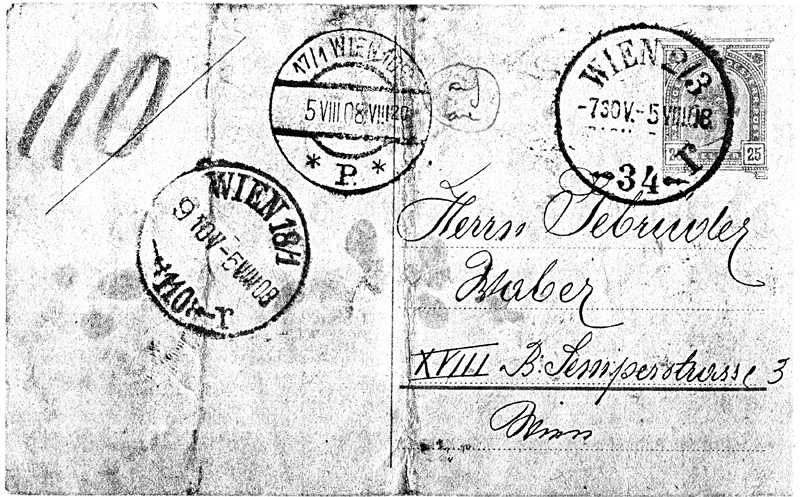 110
17/1 WIEN 106
5 VIII 08 VIII 20
* P. *
WIEN 2/3
-730V.-5 VIII 08
34
T
25
WIEN 18/1
9 10V-5 VIII 08
T
Herrn Gebrüder
Waber
XVIII B. Semperstrasse 3
Wien